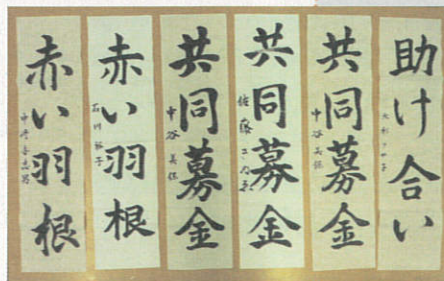 助け合い
共同募金
中谷美保
共同募金
共同募金
中谷美保
赤い羽根
赤い羽根